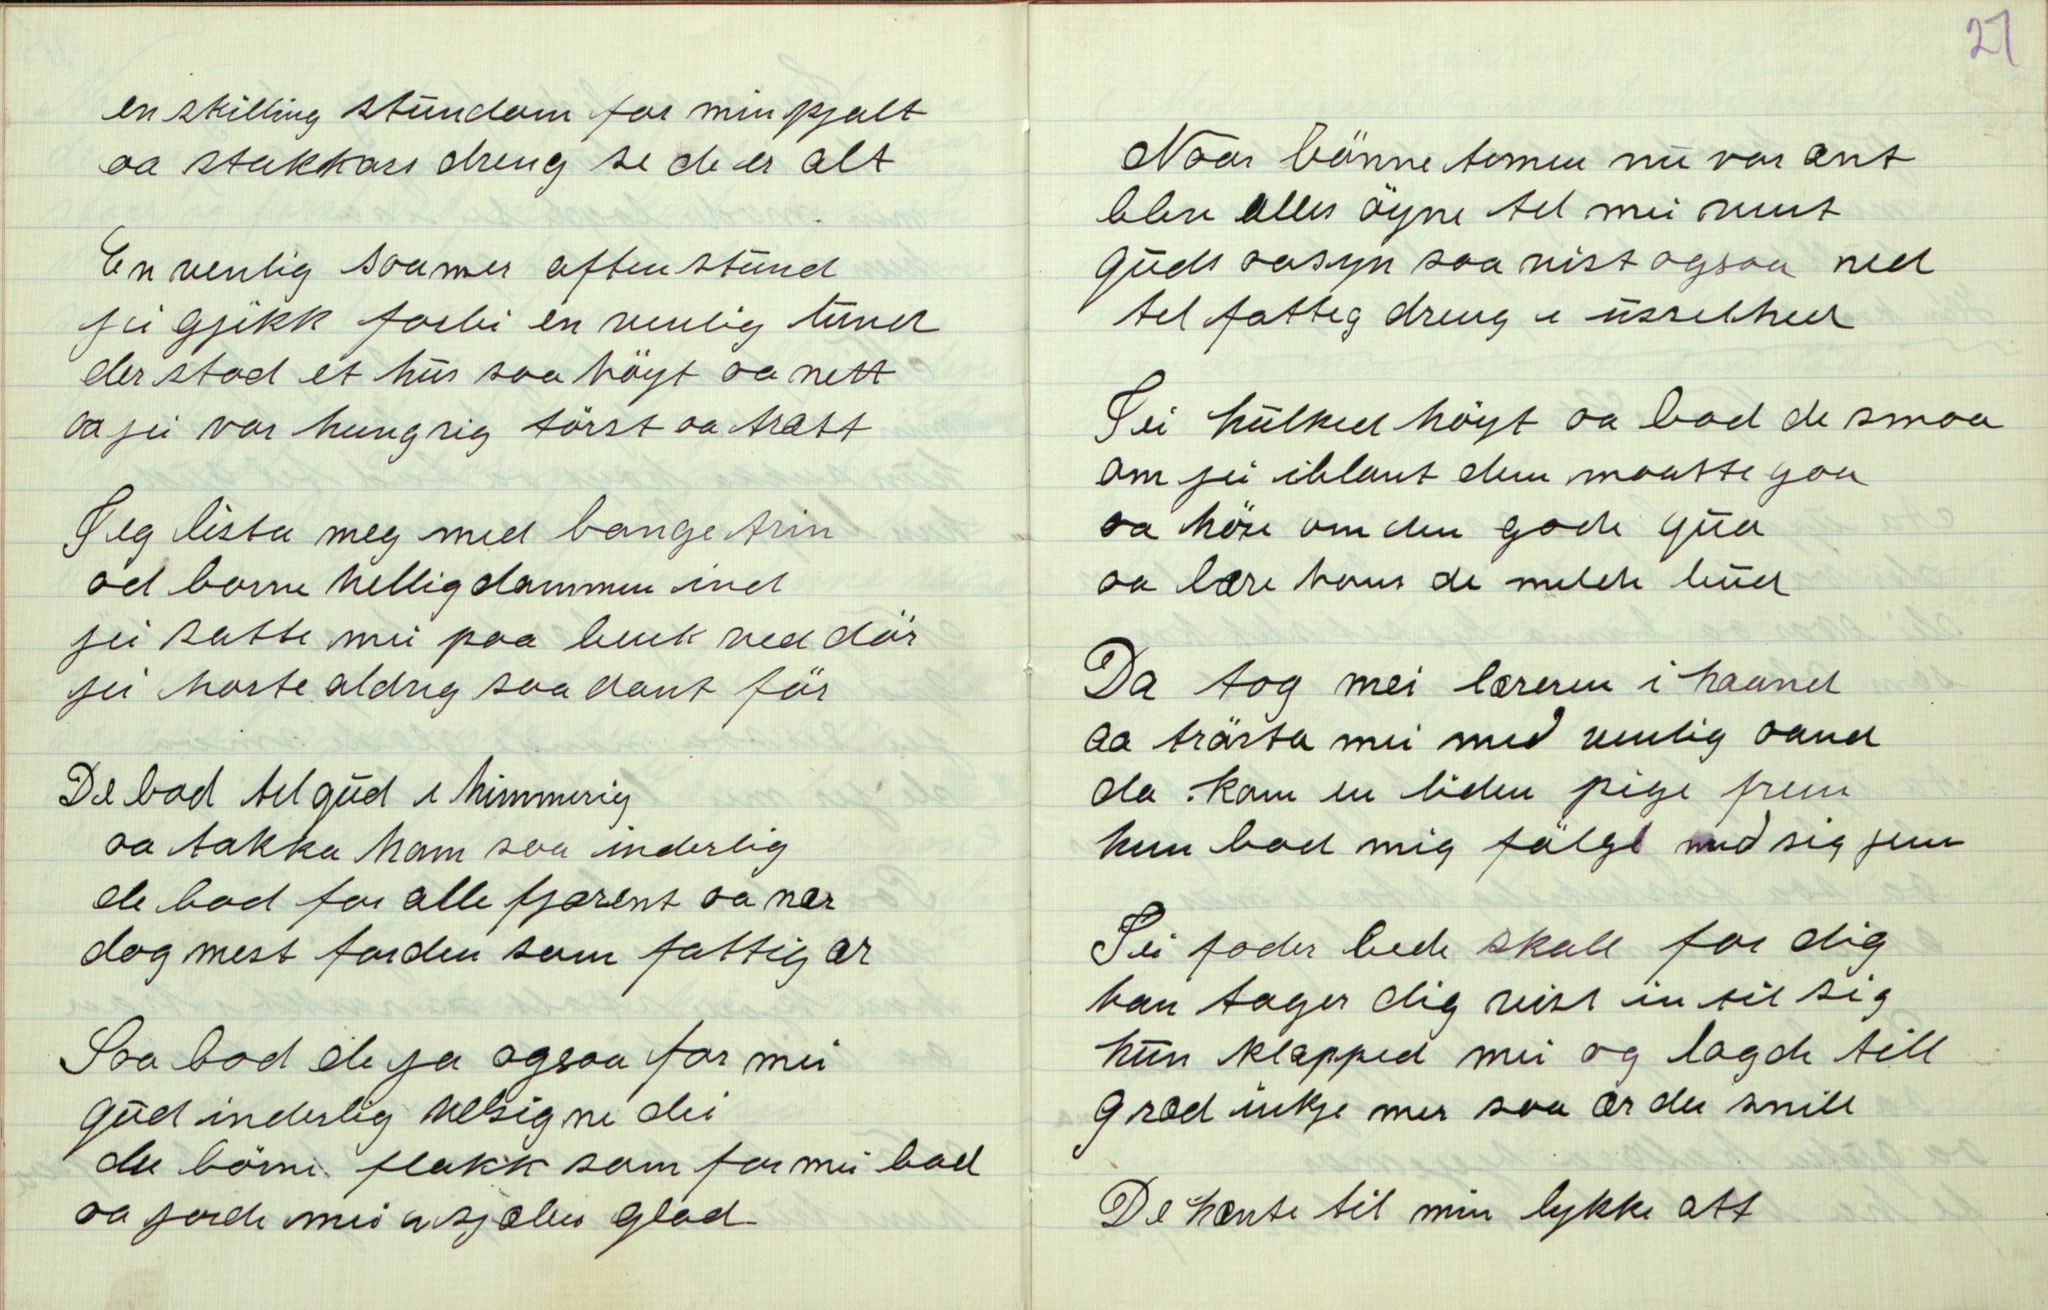 en skilling stundom for min pjalt
aa stakkars dreng se de er alt
En venlig saamer aften stund
jei gjikk forbi en venlig lund
der stod et hus saa höyt aa nett
aa jei var hungrig törst aa trætt
Jeg lista meg med bange trin
ad barne helligdammen ind
jei satte mei paa benk ved dör
jei horte aldrig saadant för
De bad tel gud i himmerig
aa takka ham saa inderlig
de bad for alle fjærent aa nær
dog mest for den som fattig ær
Saa bad de ja ogsaa for mei
gud inderlig velsigne dei
du börne flakk som for mei bad
aa jorde mei i sjælen glad
27
Naar bönne temen nu var ænt
blev alles öyne tel mei vent
guds aasyn saa vist ogsaa ned
tel fatteg dreng i usselhed
Jei hulked höyt aa bad de smaa
om jei iblant dem maatte gaa
aa höre om den gode gud
aa lære hans de milde bud
Da tog mei læreren i haand
aa trösta mei med venlig aand
da kom en liden pige frem
hun bad mig fölge med sig jem
Jei fader bede skall for dig
han tager dig vist in til sig
hun klapped mei og lagde till
græd inkje mer saa ær du snill
De hænte til min lykke att